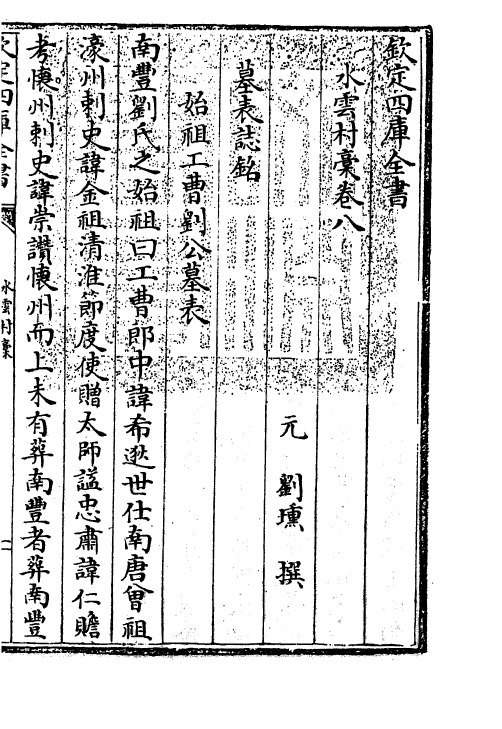 欽定四庫全書
水雲村稾卷八
元 劉壎 撰
墓表誌銘
始祖工曹劉公墓表
南豐劉氏之始祖曰工曹郎中諱希逖世仕南唐曾祖
濠州刺史諱金祖清淮節度使贈太師諡忠肅諱仁贍
考懐州刺史諱崇讃懐州而上未有葬南豐者葬南豐
欽定四庫全書
水雲村稾
一